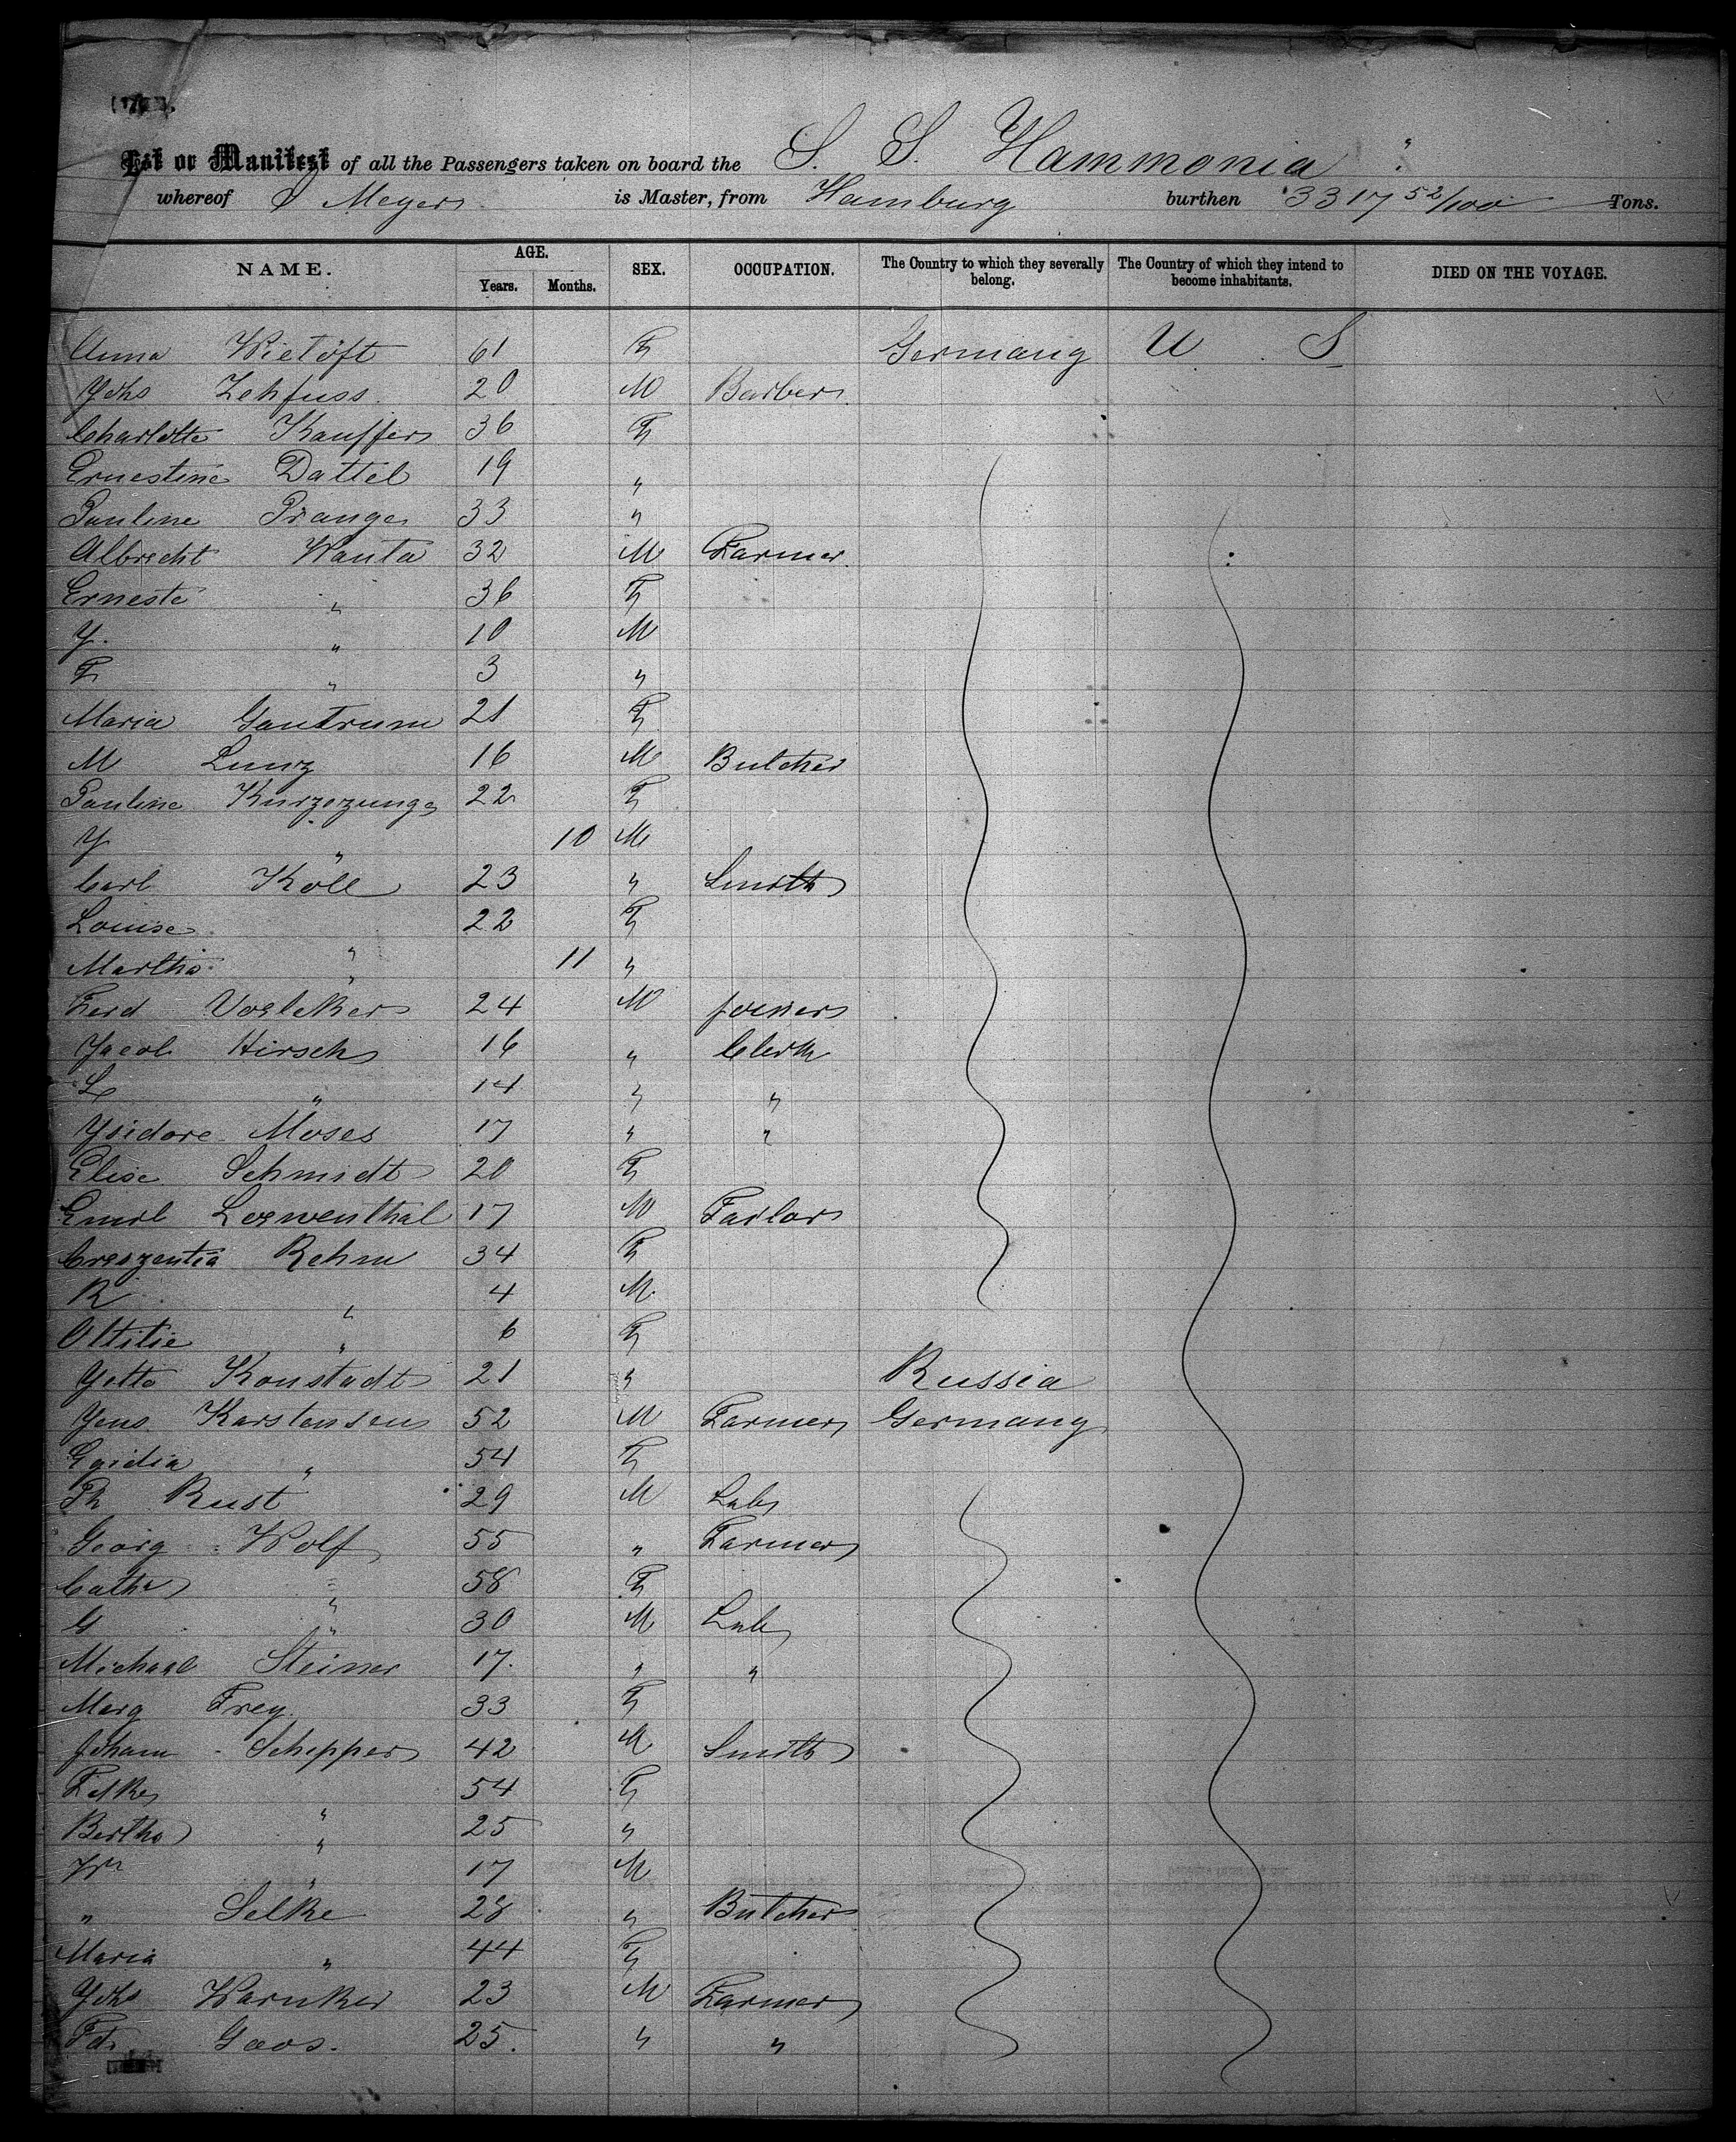 List or Manifest of all the Passengers taken on board the S. S. Hammonia
whereof Meyer is Master, from Hamburg burthen 3317 52/100 Tons.
NAME. AGE. Years. Months. SEX. OCCUPATION. The Country to which they severally belong. The Country of which they intend to become inhabitants. DIED ON THE VOYAGE.
Anna Wietöft 61 F Germany U S
Johs Zehfuss 20 M Barber
Charlotte Kauffer 36 F
Ernestine Dattel 19 "
Pauline Prange 33 "
Albrecht Wanta 32 M Farmer
Erneste " 36 F
J. " 10 M
F " 3 "
Maria Gantrum 21 F
M Lunz 16 M Butcher
Pauline Kurzezunge 22 F
J " 10 M
Carl Köll 23 " Smith
Louise " 22 F
Martha " 11 "
Ferd Voelcker 24 M joiner
Jacob Hirsch 16 " Clerk
L " 14 " "
Isidore Moses 17 " "
Elise Schmidt 20 F
Emil Loewenthal 17 M Tailor
Creszentia Rehm 34 F
R " 4 M
Ottilie " 6 F
Jette Konstadt 21 " Russia
Jens Karstensen 52 M Farmer Germany
Egidia " 54 F
Th Rust 29 M Lab
Georg Wolf 55 " Farmer
Cath " 58 F
G " 30 M Lab
Michael Steiner 17 " "
Marg Frey 33 F
Johann Schepper 42 M Smith
" 54 F
Bertha " 25 "
Wm " 17 M
" Selke 28 " Butcher
Maria " 44 F
Johs Warnker 23 M Farmer
Fd. Goos. 25. " "